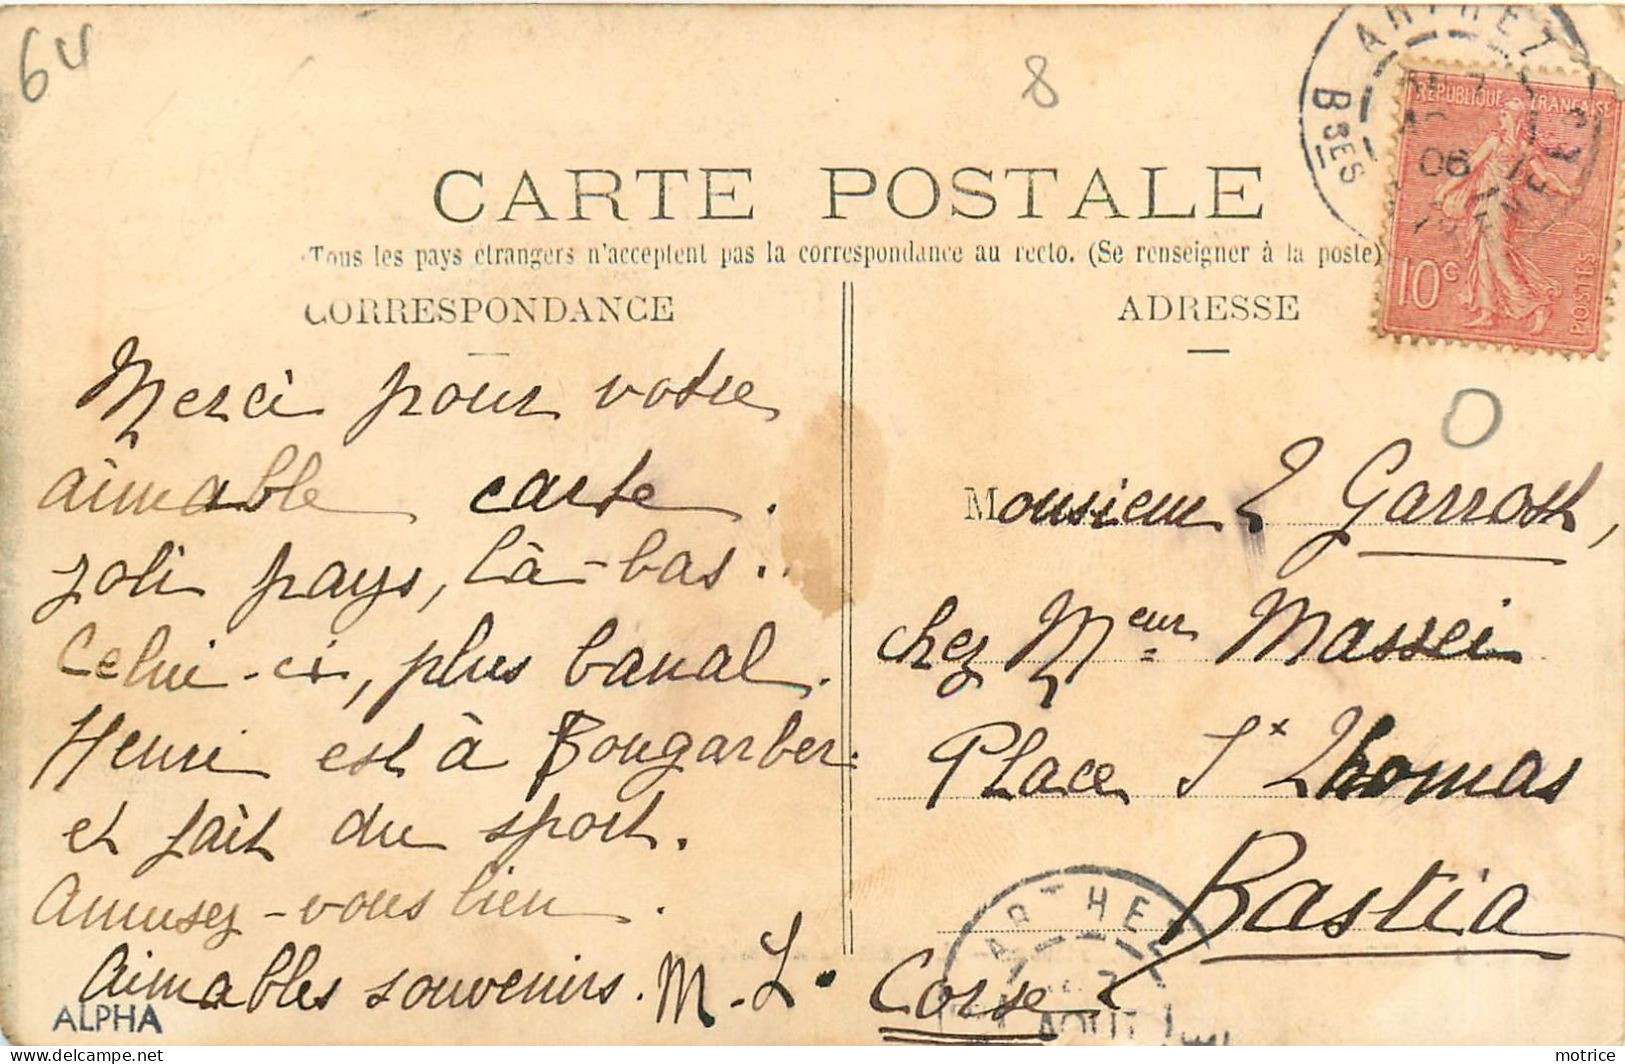 64
8
ARTHEZ
Bses
06
RÉPUBLIQUE FRANÇAISE
10c
POSTES
CARTE POSTALE
Tous les pays étrangers n'acceptent pas la correspondance au recto. (Se renseigner à la poste)
CORRESPONDANCE
ADRESSE
Merci pour votre
aimable carte.
joli pays, là-bas..
Celui-ci, plus banal.
Henri est à Bougarber
et fait du sport.
Amusez-vous bien.
Aimables souvenirs. M-L.
ALPHA
O
Monsieur Garrost,
chez Meur Massei
Place St Thomas
Bastia
Corse
ARTHEZ
AOUT
motrice